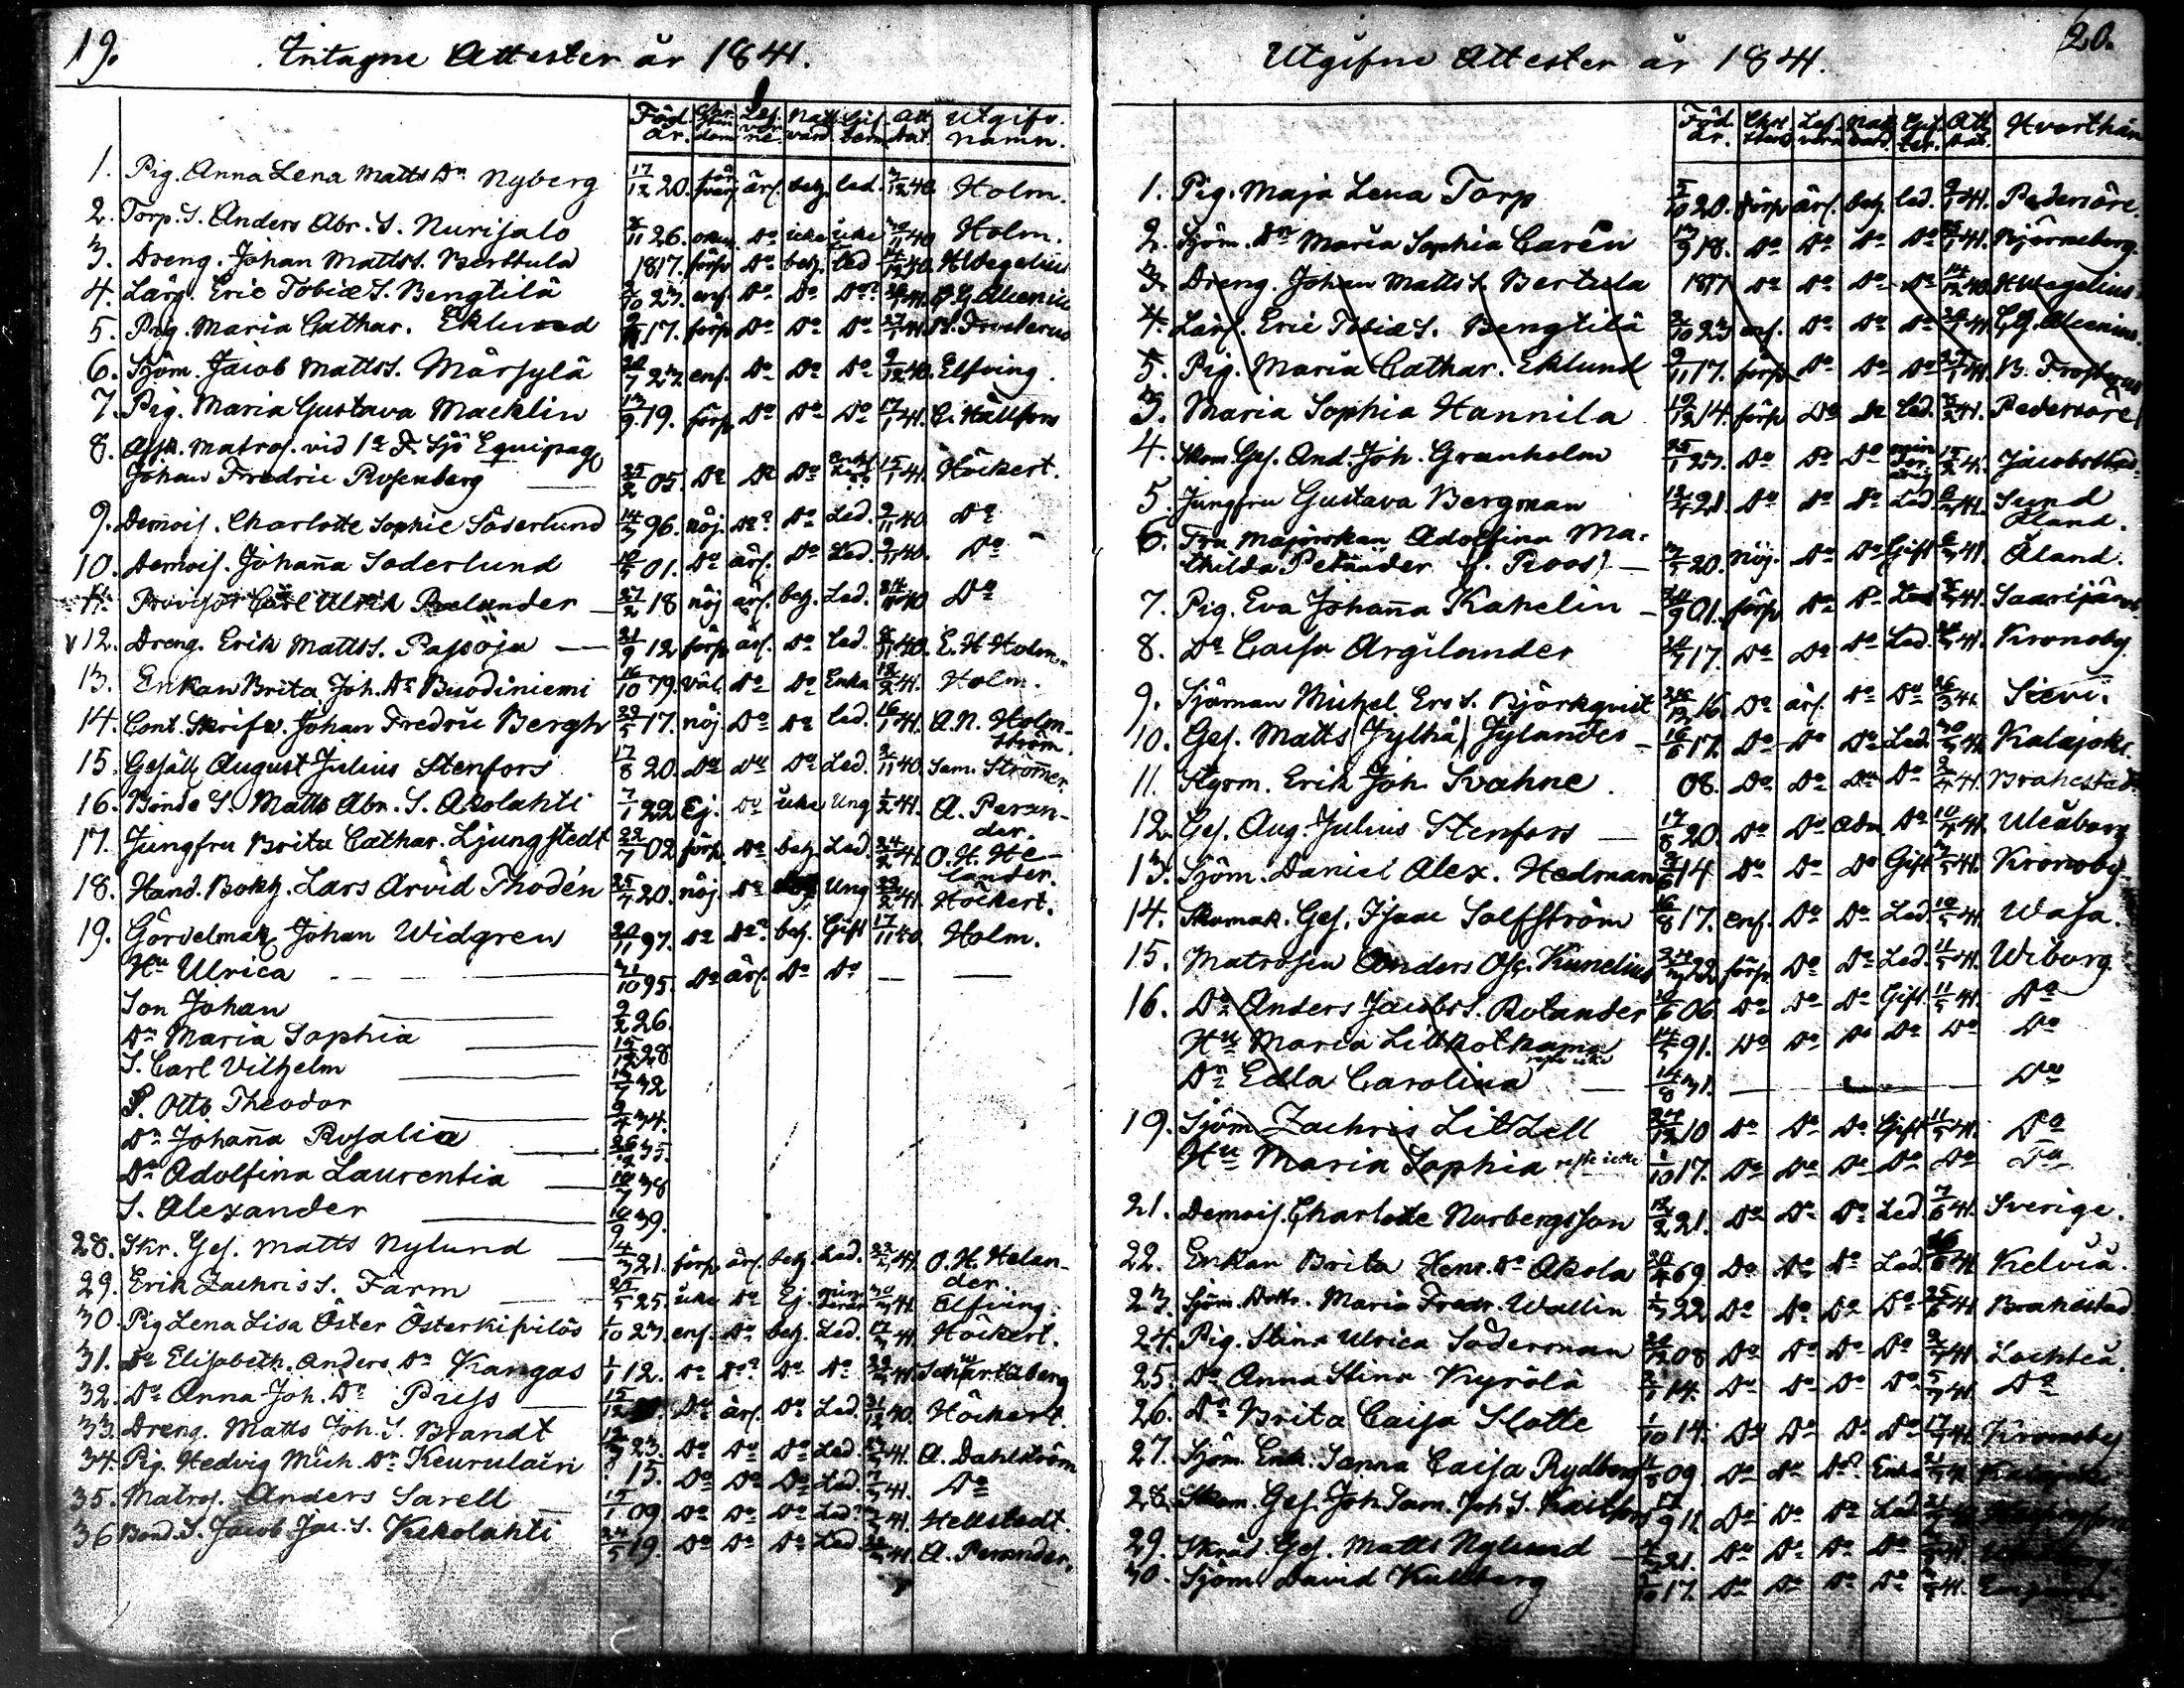 19.
Intagne Attester år 1841.
Föd. år. Chri stendom Läs. ne. Natt vard. Gif. term Att. dat. Utgifv. namn.
1. Pig. Anna Lena Matts Dr Nyberg 17/12 20. ärf. bet. led. 40. Holm.
2. Torp. S. Anders Abr. S. Nurijalo 11 26. Do icke icke 11 40 Holm.
3. Dreng. Johan Matts S. Berttula 1817. försv. Do bet. led 14/12 40. H Wegelius
4. Lärg. Eric Tobiæ S. Bengtilä 10 23. enf. Do Do Do 41.
5. Pig. Maria Cathar. Eklund 9/11 17. försv Do Do Do 27/1 41. B. Frosterus
6. Sjöm. Jacob Matts S. Märsylä 7 23. enf. Do Do Do 9/12 40. Elfving.
7. Pig. Maria Gustava Macklin 13/9 19. försv Do Do Do 17/1 41. C. Hällfors
8. Afsk. Matros. vid 1a F. Sjö Equipag.
Johan Fredric Rosenberg 25/2 05. Do Do Do 15/1 41. Höckert.
9. Demois. Charlotte Sophie Söderlund 14/3 96. nöj. Do Do Led. 9/11 40 Do
10. Demois. Johanna Soderlund 01. Do ärf. Do Led. 9/11 40. Do
11. Provisor Carl Ulrik Relander 27/2 18 nöj ärf. bet. Led. 24/11 40 Do
12. Dreng. Erik Matts S. Passoja 21/9 12 försv ärf. Do Led. 40. E. H Holm.
13. Enkan Brita Joh. Dr Buodiniemi 16/10 79. väl. Do Do Enka 18/2 41. Holm.
14. Cont. Skrifv. Johan Fredric Bergh 22/5 17. nöj. Do Do led. 16/1 41. A. N. Holm-
ström.
15. Gesäll August Julius Stenfors 17/8 20. Do Do Do Led. 11 40. Sam. Strömer
16. Bonde S. Matts Abr. S. Akolahti 7/1 22 Ej. Do icke Ung 1/2 41. A. Peran-
der.
17. Jungfru Brita Cathar. Ljungstedt 22/7 02 försv. Do bet. Led. 24/2 41. O. H. He-
lander.
18. Hand. Bokh. Lars Arvid Thodén 25/4 20. nöj. Do Ung 22/2 41. Höckert.
19. Görvelmak. Johan Widgren 20/11 97. Do Do bet. Gift 17/11 40 Holm.
Hu Ulrica 31/10 95. Do ärf. Do Do
Son Johan 9/2 26.
Dr Maria Sophia 15/12 28
S. Carl Vilhelm 7 32
S. Otto Theodor 9/4 34.
Dr Johanna Rosalia 26 35.
Dr Adolfina Laurentia 7 38
S. Alexander 10/9 39.
28. Skr. Ges. Matts Nylund 4/3 21. försv ärf. bet. Led. 41. O. H. Helan-
der
29. Erik Zachris S. Färm 25/5 25. icke Do Ej. 30/3 41 Elfving.
30. Pig Lena Lisa Öster Österkipilös 1/10 23. enf. Do bet. Led. 17/3 41 Höckert.
31. Do Elisabeth Anders Dr Kangas 1/1 12. Do Do Do Do 41. Schwartzberg
32. Do Anna Joh. Dr Puss 15/12 Do ärf. Do Led. 31/12 40. Höckert.
33. Dreng. Matts Joh. S. Brandt 12 23. Do Do Do Led. 41. A. Dahlström
34. Pig. Hedvig Mich. Dr Keurulain 15. Do Do Do Led. 41. Do
35. Matros. Anders Sarell 15/1 09 Do Do Do Led. 41. Hellstedt.
36 Bond. S. Jacob Jac. S. Kekolahti 24/5 19. Do Do Do Led. 41. A. Perander.
20.
Utgifne Attester år 1841.
Föd. år. Chri stend. Läs. Natt vard. Gif. ter. Att. dat. Hvarthän
1. Pig. Maja Lena Torp 5/10 20. försv ärf. bet. led. 9/1 41. Pedersöre.
2. Sjöm. Dr Maria Sophia Carén 13/9 18. Do Do Do Do 41. Björneborg.
3. Dreng. Johan Matts S. Bertula 1817 Do Do Do Do 14/12 40. H Wegelius
4. Lärf. Eric Tobiæ S. Bengtilä 10 23 enf. Do Do Do 41.
5. Pig. Maria Cathar. Eklund 9/11 17. försv Do Do Do 27/1 41. B. Frosterus
3. Maria Sophia Hannila 19/12 14. försv Do Do Led. 41. Pedersöre
4. Skom. Ges. And. Joh. Granholm 25/1 23. Do Do Do 15/2 41. Jacobstad.
5. Jungfru Gustava Bergman 21. Do Do Do Led. 41. Sund
Åland.
6. Fru Majorskan Adolfina Ma-
thilda Petander f. Roos 20. nöj. Do Do Gift 41. Åland.
7. Pig. Eva Johanna Kahelin 24/9 01. försv Do Do Led 41. Saarijärvi
8. Do Caisa Argilander 17. Do Do Do Led. 41. Kronoby
9. Sjöman Michel Ers S. Björkqvist 12 16. Do ärf. Do Do 26/3 41 Sievi.
10. Ges. Matts (Jylhä) Jylander 16/6 17. Do Do Do Led. 30/3 41 Kalajoki
11. Styrm. Erik Joh. Svahne. 08. Do Do Do Do 41. Brahestad.
12. Ges. Aug. Julius Stenfors 17/8 20. Do Do Do 41. Uleåborg
13. Sjöm. Daniel Alex. Hedman 14 Do Do Do Gift 41. Kronoby
14. Skomak. Ges. Isaac Solfström 16/8 17. enf. Do Do Led. 10/5 41 Wasa.
15. Matrosen Anders Kunelius 22 försv. Do Do Led. 11/5 41. Wiborg.
16. Do Anders Jacobs S. Rolander 06. Do Do Do Gift 11/5 41. Do
Hu Maria Litkotkama 14/5 91. Do Do Do Do Do Do
Dr Edla Carolina 14/8 31. Do
19. Sjöm Zachris LitZell 24/12 10 Do Do Do Gift 11/5 41. Do
Hu Maria Sophia reste icke 1/10 17. Do Do Do Do Do Do
21. Demois. Charlotte Norbergsson 12/2 21. Do Do Do Led 7/6 41. Sverige.
22. Enkan Brita Henr. Dr Akola 69 Do Do Do Led. 41 Kelviå.
23. Sjöm. Dottr. Maria Fredr. Wallin 1/3 22 Do Do Do Do 25/6 41 Brahestad
24. Pig. Stina Ulrica Söderman 12 08 Do Do Do Do 41. Lochteå.
25. Do Anna Stina Kyrölä 14. Do Do Do Do 41. Do
26. Do Brita Caisa Slotte 1/10 14. Do Do Do Do 17/7 41. Kronoby
27. Sjöm. Enk. Sanna Caisa Rydberg 09 Do Do Do Enka
28. Skom. Ges. Joh. Sam. Joh. S. 9 11. Do Do Do Led.
29. Skräd. Ges. Matts Nylund 4/3 21. Do Do Do Do 41.
30. Sjöm David Kullberg 10 17. Do Do Do Do 41.